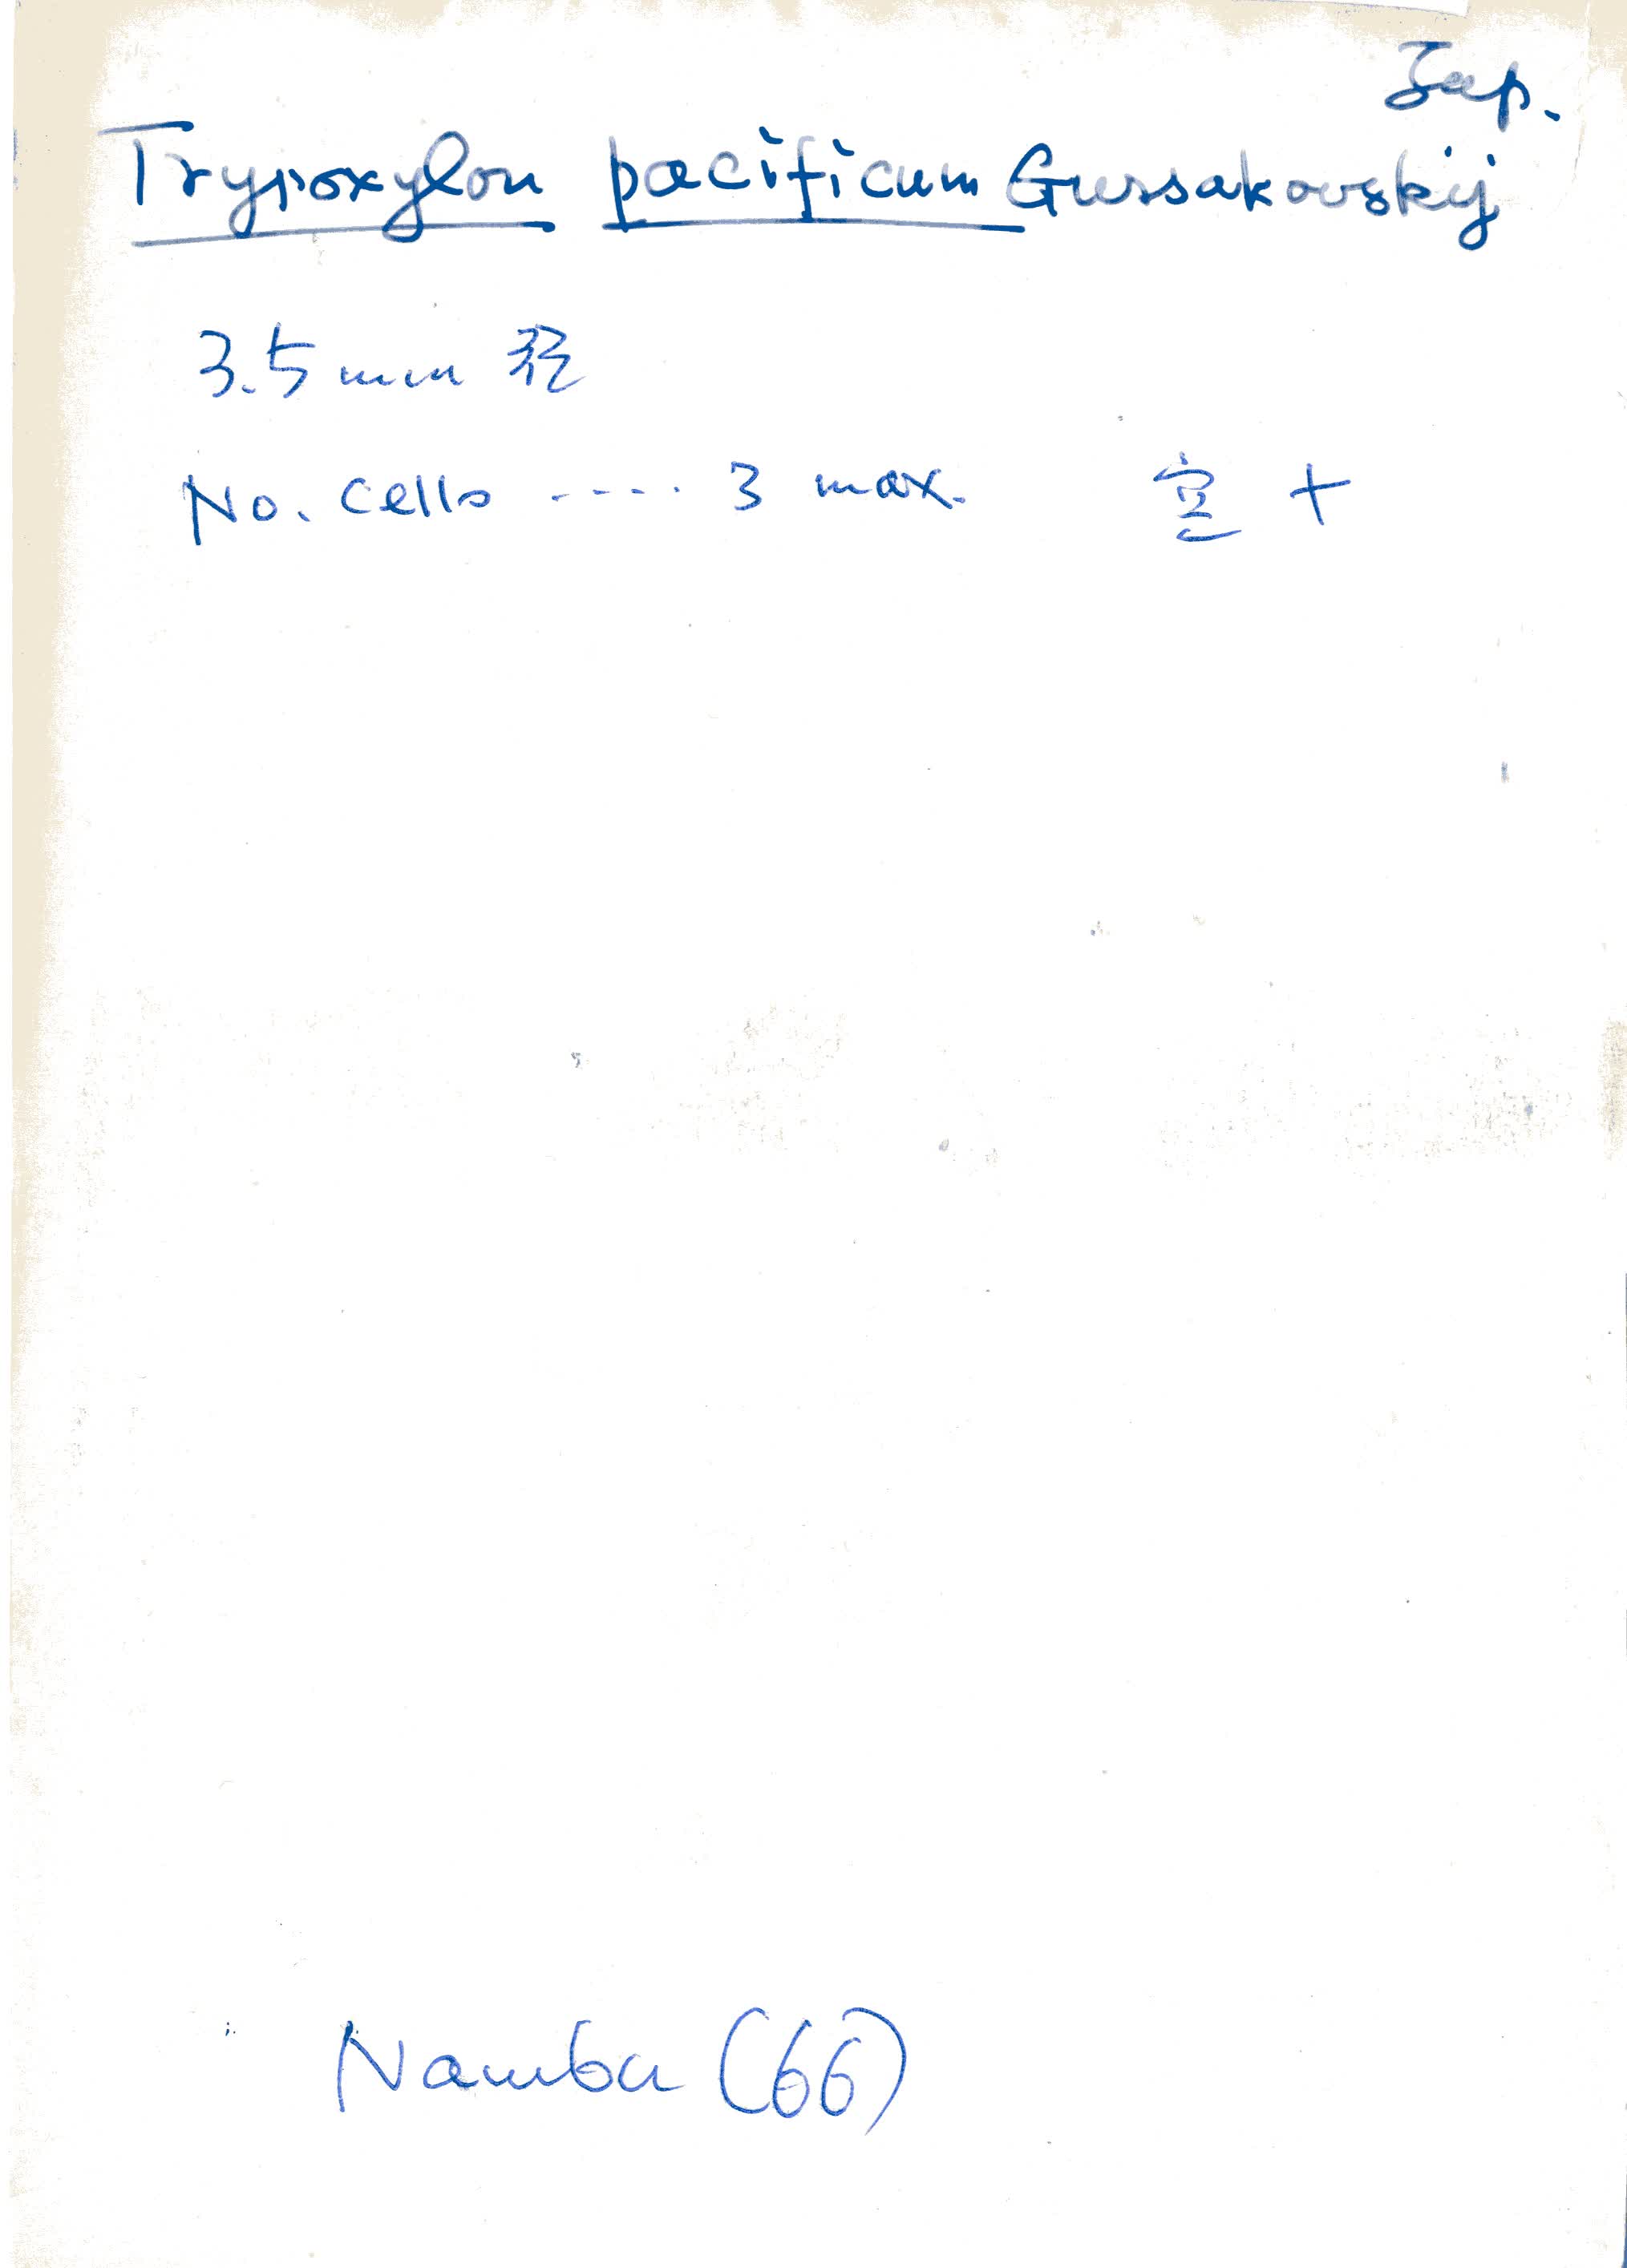 Jap.
Trypoxylon pacificum Gussakovskij
3.5mm 径
No. cells ---- 3 max. 空 +
Namba (66)